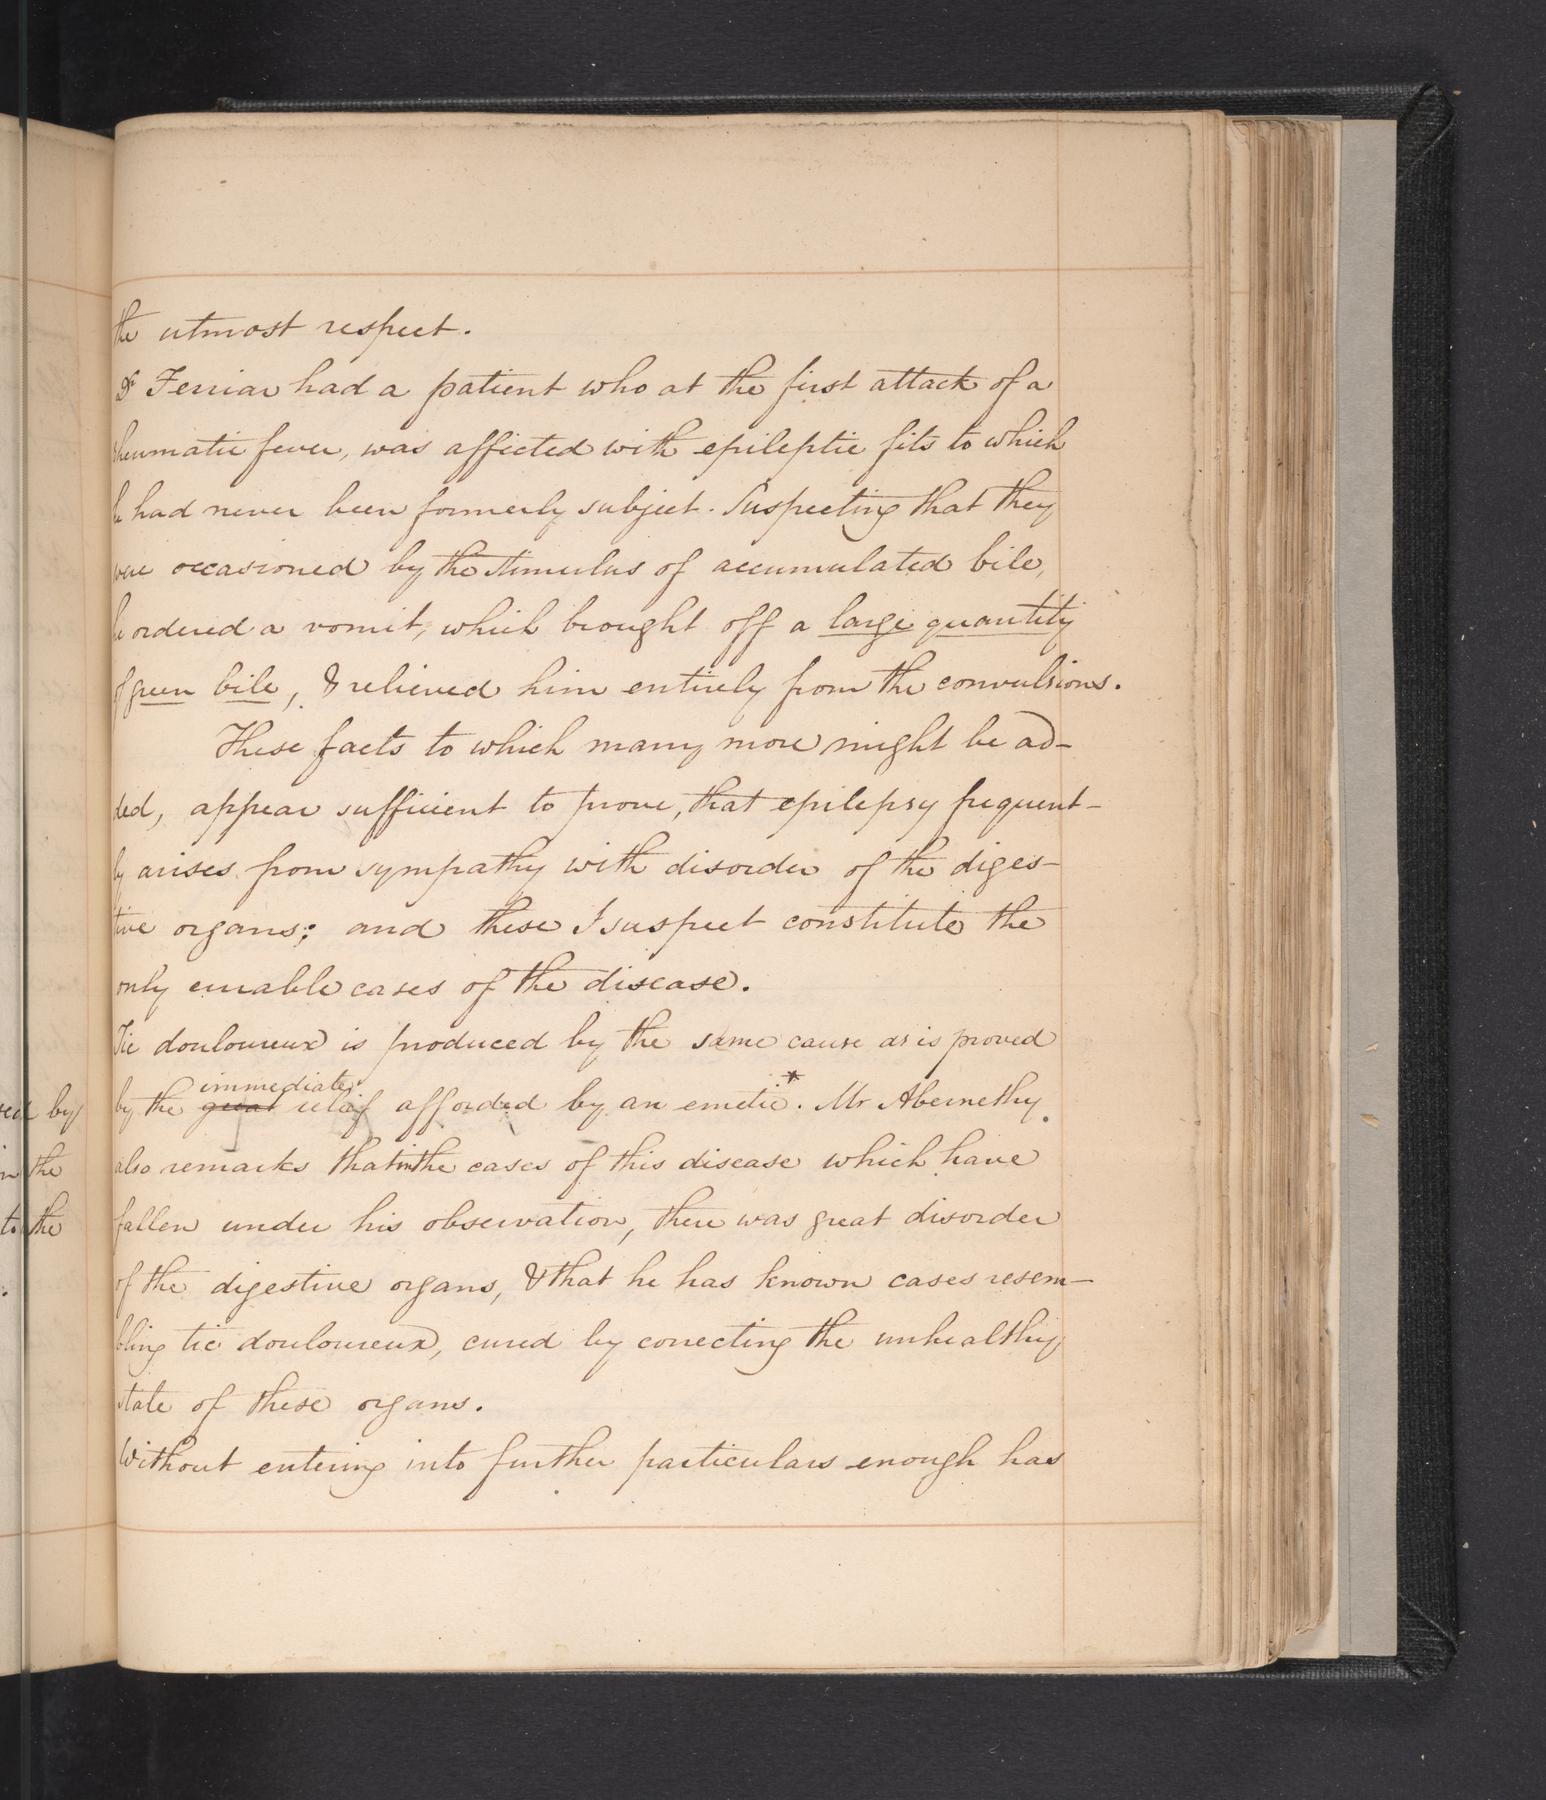 the utmost respect.
Dr Ferriar had a patient who at the first attack of a
rheumatic fever, was affected with epileptic fits to which
he had never been formerly subject. Suspecting that they
were occasioned by the stimulus of accumulated bile,
he ordered a vomit, which brought off a large quantity
of green bile, & relieved him entirely from the convulsions.
These facts to which many more might be ad-
ded, appear sufficient to prove, that epilepsy frequent-
ly arises from sympathy with disorder of the diges-
tive organs; and these I suspect constitute the
only curable cases of the disease.
Tic douloureux is produced by the same cause as is proved
immediate
by the great relief afforded by an emetic.* Mr Abernethy
also remarks that in the cases of this disease which have
fallen under his observation, there was great disorder
of the digestive organs, & that he has known cases resem-
bling tic douloureux, cured by correcting the unhealthy
state of these organs.
Without entering into further particulars enough has
by
the
to the